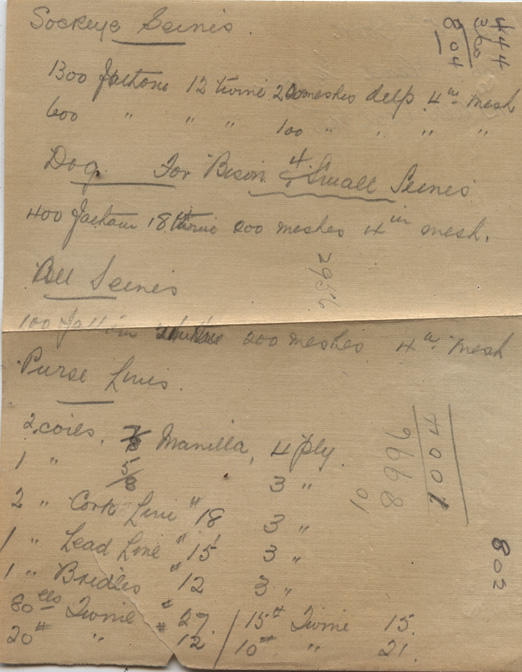 Sockeye Seines.
444
360
804
1300 Fathoms 12 Twine 200 meshes deep 4" mesh
600 " " " 100 " " " "
Dog For Bison & 4 Small Seines
400 Fathom 18 Twine 200 meshes 4" mesh.
2956
All Seines
100 Fathom 200 meshes 4" mesh
Purse Lines.
2 coils, 7/8 Manilla, 4 ply.
1 " 5/8 3 "
2 " Cork Line " 18 3 "
1 " Lead Line " 15 3 "
1 " Bridles " 12 3 "
80 lbs Twine # 27. / 15# Twine 15.
20# " # 12 / 10# " 21.
10
8996
1004
802